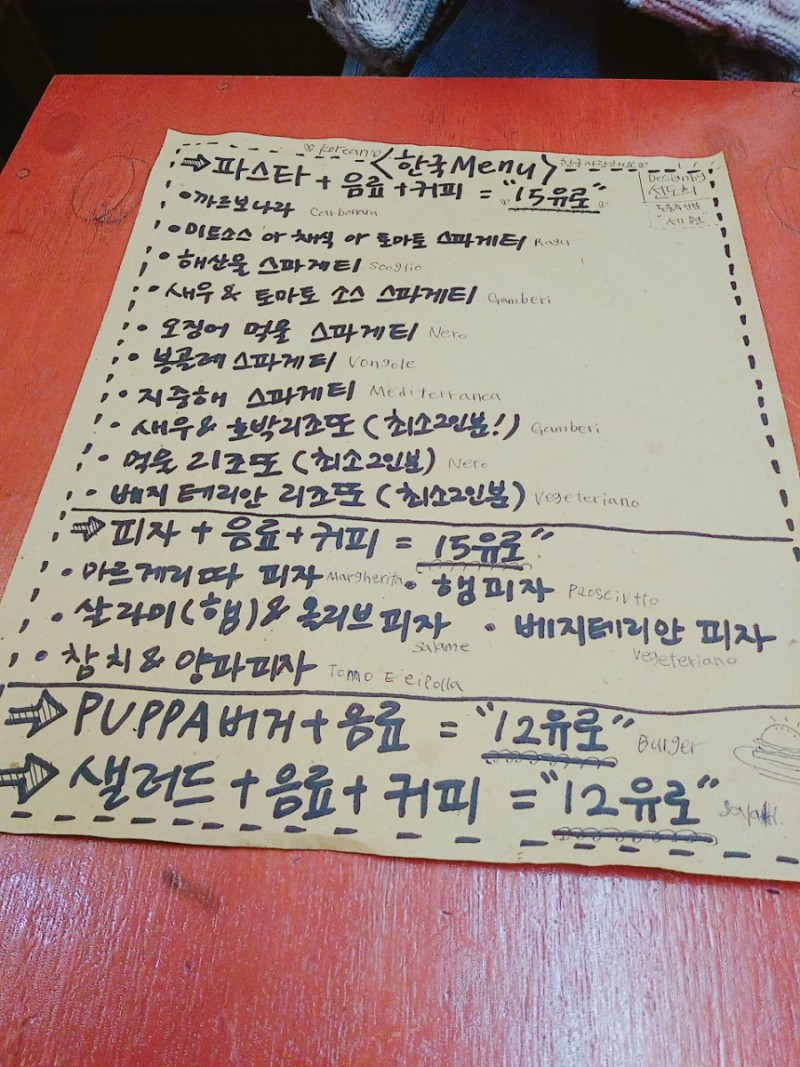 ♡ Korean ♡ <한국Menu>
Design by
선도희
⇒ 파스타 + 음료 + 커피 = "15유로"
세현
• 까르보나라 Carbonara
• 미트소스 or 채식 or 토마토 스파게티 Ragu
• 해산물 스파게티 Scoglio
• 새우 & 토마토 소스 스파게티 Gamberi
• 오징어 먹물 스파게티 Nero
• 봉골레 스파게티 Vongole
• 지중해 스파게티 Mediterranea
• 새우 & 호박리조또 (최소2인분!) Gamberi
• 먹물 리조또 (최소2인분) Nero
• 베지테리안 리조또 (최소2인분) Vegeteriano
⇒ 피자 + 음료 + 커피 = 15유로"
• 마르게리따 피자 Margherita • 햄피자 Proseivtto
• 살라미(햄) & 올리브피자 Salame • 베지테리안 피자 Vegeteriano
• 참치 & 양파피자 Tonno E eipolla
⇒ PUPPA버거 + 음료 = "12유로" Burger
⇒ 샐러드 + 음료 + 커피 = "12유로"